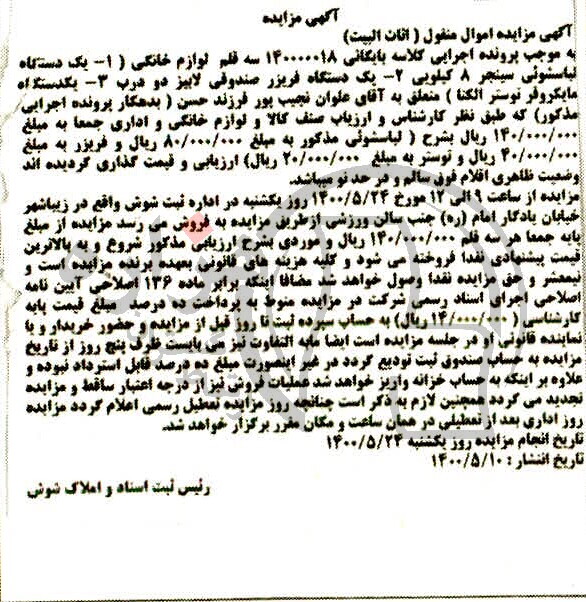 آگهی مزایده
آگهی مزایده اموال منقول ( اثاث البیت)
به موجب پرونده اجرایی کلاسه بایگانی ۱۴۰۰۰۰۰۱۸ سه قلم لوازم خانگی ( ۱- یک دستگاه
لباسشوئی سینجر ۸ کیلویی ۲- یک دستگاه فریزر صندوقی لایبز دو درب ۳- یکدستگاه
مایکروفر توستر الکتا ) متعلق به آقای علوان نجیب پور فرزند حسن ( بدهکار پرونده اجرایی
مذکور) که طبق نظر کارشناس و ارزیاب صنف کالا و لوازم خانگی و اداری جمعا به مبلغ
۱۴۰/۰۰۰/۰۰۰ ریال بشرح ( لباسشوئی مذکور به مبلغ ۸۰/۰۰۰/۰۰۰ ریال و فریزر به مبلغ
۴۰/۰۰۰/۰۰۰ ریال و توستر به مبلغ ۲۰/۰۰۰/۰۰۰ ریال) ارزیابی و قیمت گذاری گردیده اند
وضعیت ظاهری اقلام فوق سالم و در حد نو میباشد.
مزایده از ساعت ۹ الی ۱۲ مورخ ۱۴۰۰/۵/۲۴ روز یکشنبه در اداره ثبت شوش واقع در زیباشهر
خیابان یادگار امام (ره) جنب سالن ورزشی ازطریق مزایده به فروش می رسد مزایده از مبلغ
پایه جمعا هر سه قلم ۱۴۰/۰۰۰/۰۰۰ ریال و موردی بشرح ارزیابی مذکور شروع و به بالاترین
قیمت پیشنهادی نقدا فروخته می شود و کلیه هزینه های قانونی بعهده برنده مزایده است و
نیمعشر و حق مزایده نقدا وصول خواهد شد مضافا اینکه برابر ماده ۱۳۶ اصلاحی آیین نامه
اصلاحی اجرای اسناد رسمی شرکت در مزایده منوط به پرداخت ده درصد مبلغ قیمت پایه
کارشناسی ( ۱۴/۰۰۰/۰۰۰ ریال) به حساب سپرده ثبت تا روز قبل از مزایده و حضور خریدار و یا
نماینده قانونی او در جلسه مزایده است ایضا مابه التفاوت نیز می بایست ظرف پنج روز از تاریخ
مزایده به حساب صندوق ثبت تودیع گردد در غیر اینصورت مبلغ ده درصد قابل استرداد نبوده و
علاوه بر اینکه به حساب خزانه واریز خواهد شد عملیات فروش نیز از درجه اعتبار ساقط و مزایده
تجدید می گردد همچنین لازم به ذکر است چنانچه روز مزایده تعطیل رسمی اعلام گردد مزایده
روز اداری بعد از تعطیلی در همان ساعت و مکان مقرر برگزار خواهد شد.
تاریخ انجام مزایده روز یکشنبه ۱۴۰۰/۵/۲۴
تاریخ انتشار : ۱۴۰۰/۵/۱۰
رئیس ثبت اسناد و املاک شوش